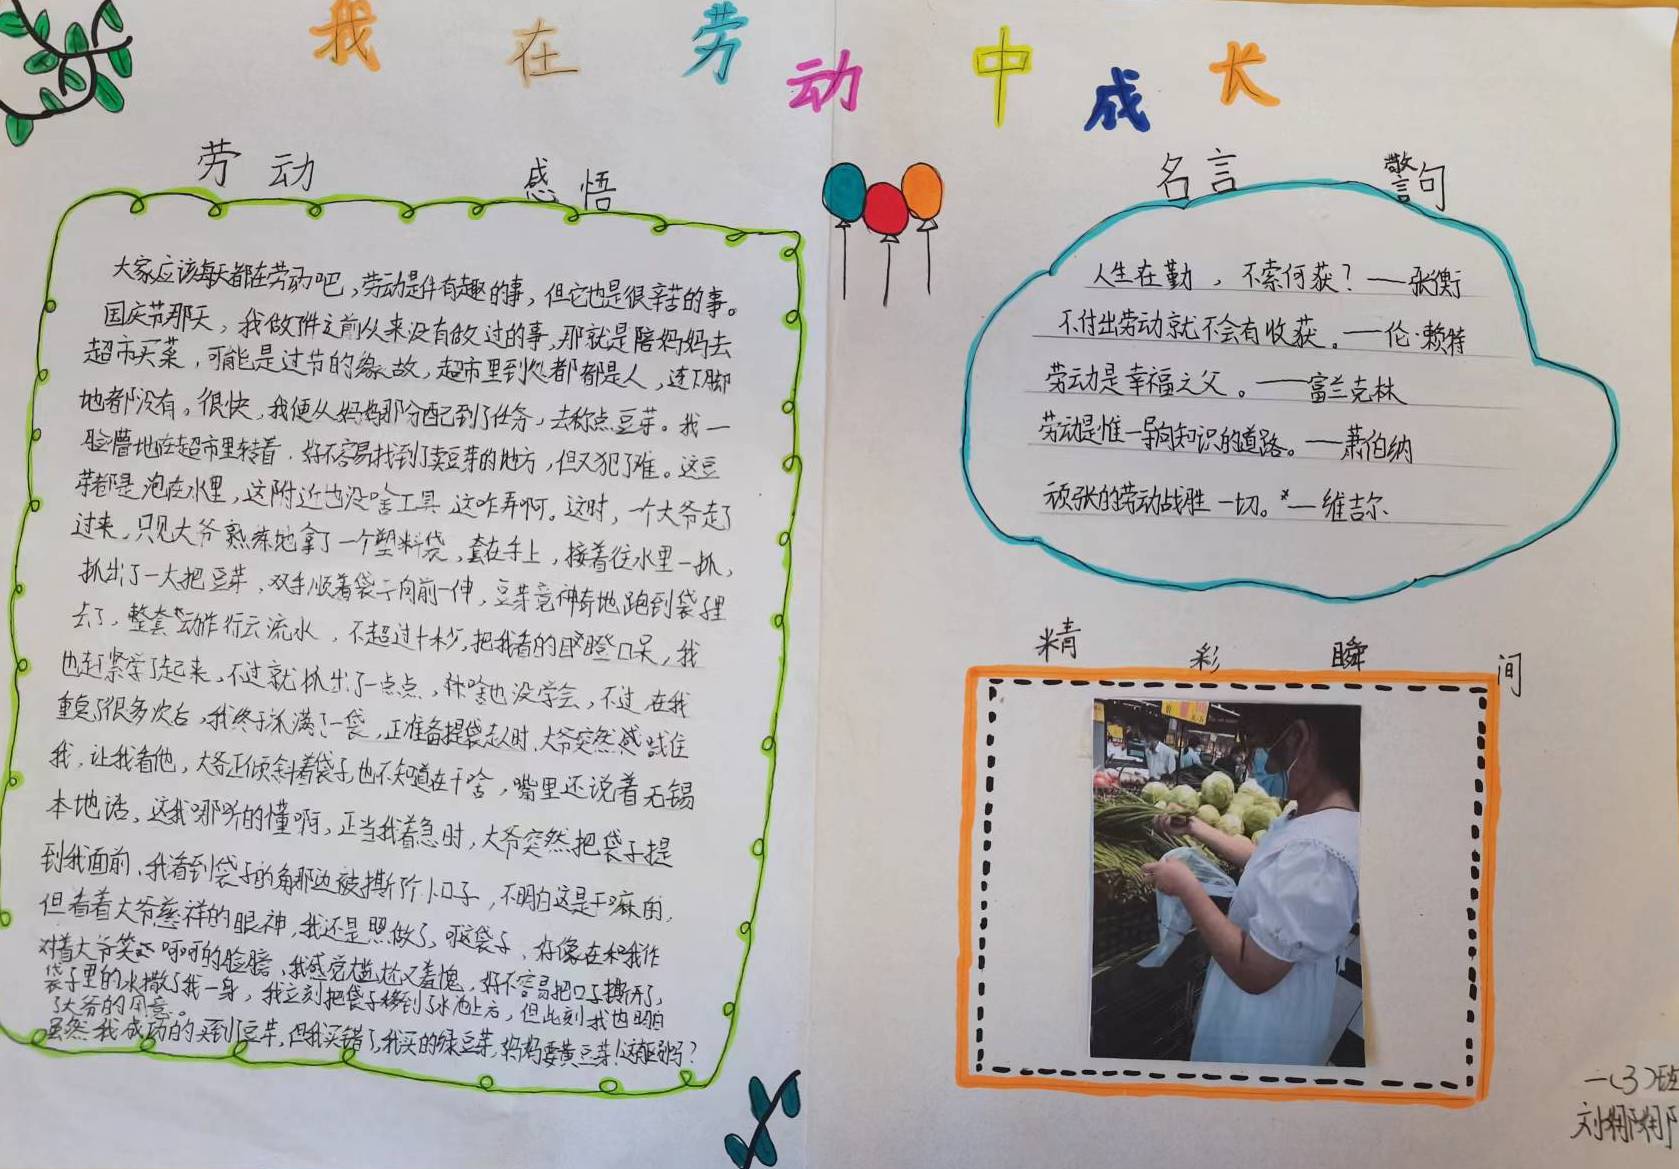 我在劳动中成长
劳动感悟
大家应该每天都在劳动吧，劳动是件有趣的事，但它也是很辛苦的事。
国庆节那天，我做了件之前从来没有做过的事，那就是陪妈妈去
超市买菜，可能是过节的缘故，超市里到处都都是人，连下脚
地都没有。很快，我便从妈妈那分配到了任务，去称点豆芽。我一
脸懵地在超市里转着，好不容易找到了卖豆芽的地方，但又犯了难。这豆
芽都是泡在水里，这附近也没啥工具，这咋弄啊。这时，一个大爷走了
过来，只见大爷熟练地拿了一个塑料袋，套在手上，接着往水里一抓，
抓出了一大把豆芽，双手顺着袋子向前一伸，豆芽竟神奇地跑到袋子里
去了，整套动作行云流水，不超过十秒，把我看的目瞪口呆，我
也赶紧学了起来，不过就抓出了一点点，啥也没学会，不过在我
重复了很多次后，我终于抓满了一袋，正准备提袋走人时，大爷突然喊住
我，让我看他，大爷正倾斜着袋子，也不知道在干啥，嘴里还说着无锡
本地话，这我哪听的懂啊，正当我着急时，大爷突然把袋子提
到我面前，我看到袋子的角那边被撕了个小口子，不明白这是干嘛的，
但看着大爷慈祥的眼神，我还是照做了，可这袋子，好像在和我作
对着大爷笑呵呵的脸膀，我感觉尴尬又羞愧，好不容易把口子撕开了，
袋子里的水撒了我一身，我立刻把袋子移到了水池上方，但此刻我也明白
了大爷的用意。
虽然我成功的买到了豆芽，但我买错了，我买的绿豆芽，妈妈要黄豆芽！这有区别吗？
名言警句
人生在勤，不索何获？——张衡
不付出劳动就不会有收获。——伦·赖特
劳动是幸福之父。——富兰克林
劳动是惟一导向知识的道路。——萧伯纳
顽张的劳动战胜一切。——维吉尔
精彩瞬间
一（3）班
刘娜娜